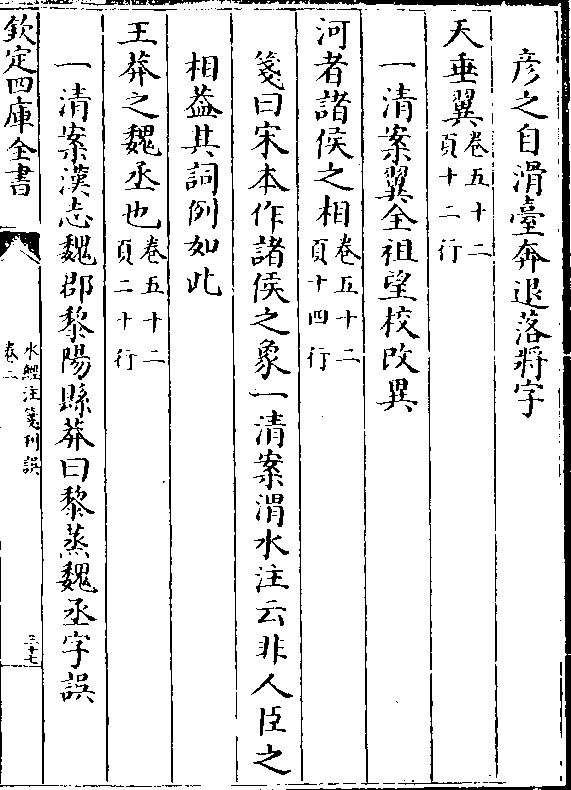 彦之自滑臺奔退落將字
天垂翼卷五十二頁十二行
一清案翼全祖望校改異
河者諸侯之相卷五十二頁十四行
箋曰宋本作諸侯之象一清案渭水注云非人臣之
相葢其詞例如此
王莽之魏丞也卷五十二頁二十行
一清案漢志魏郡黎陽縣莽曰黎蒸魏丞字誤
欽定四庫全書
水經注箋刊誤
卷二
三十七